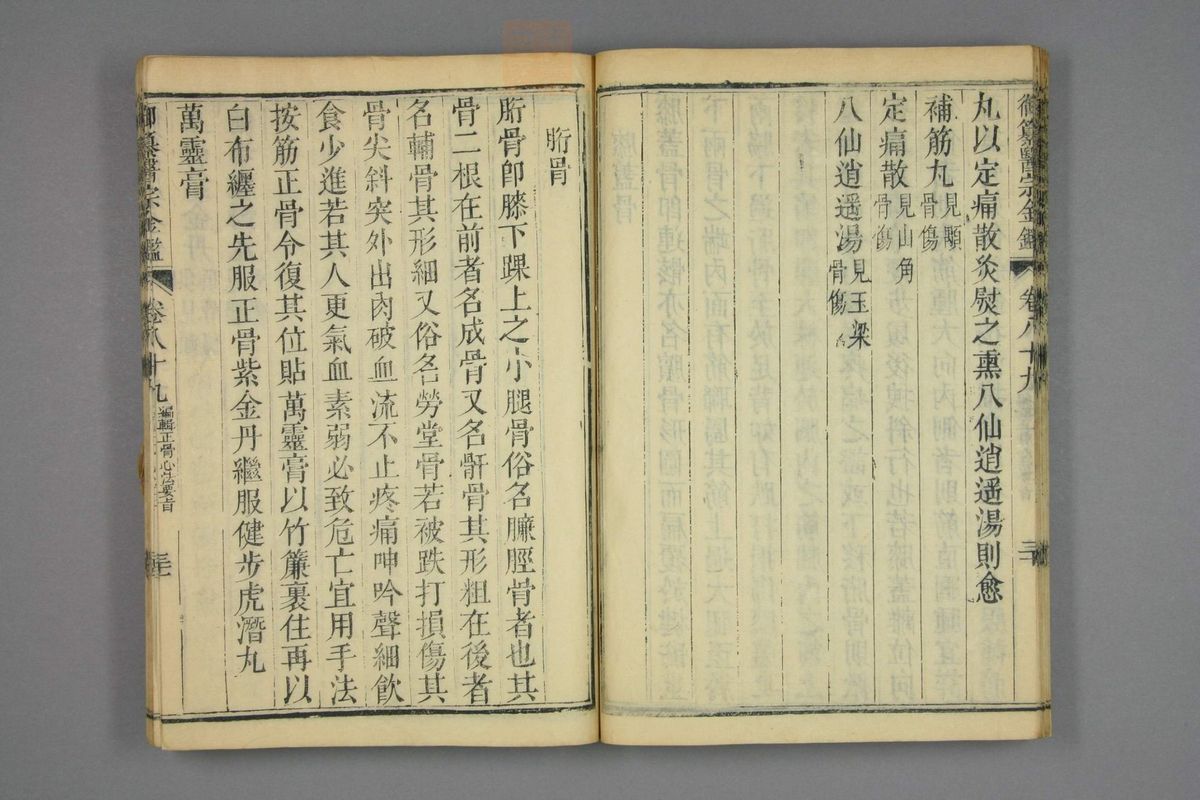 御纂醫宗金鑑 卷八十九
丸以定痛散灸熨之熏八仙逍遥湯則愈
補筋丸見顒骨傷
定痛散見山角骨傷
八仙逍遥湯見玉梁骨傷
胻骨
胻骨卽膝下踝上之小腿骨俗名臁脛骨者也其
骨二根在前者名成骨又名骭骨其形粗在後者
名輔骨其形細又俗名勞堂骨若被跌打損傷其
骨尖斜突外出肉破血流不止疼痛呻吟聲細飲
食少進若其人更氣血素弱必致危亡宜用手法
按筋正骨令復其位貼萬靈膏以竹簾裹住再以
白布纏之先服正骨紫金丹繼服健步虎潛丸
萬靈膏
御纂醫宗金鑑 卷八十九 編輯正骨心法要旨